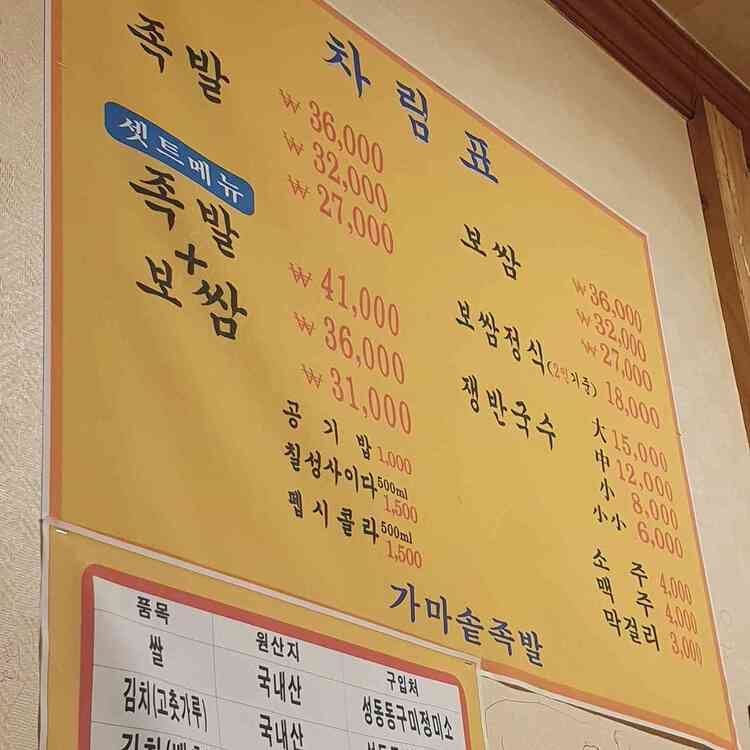 차림표
족발
₩36,000
₩32,000
₩27,000
셋트메뉴
족발
+
보쌈
₩41,000
₩36,000
₩31,000
공기밥 1,000
칠성사이다 500ml 1,500
펩시콜라 500ml 1,500
보쌈
₩36,000
₩32,000
₩27,000
보쌈정식(2인기준) 18,000
쟁반국수
大 15,000
中 12,000
小 8,000
小小 6,000
소주 4,000
맥주 4,000
막걸리 3,000
가마솥족발
품목 원산지 구입처
쌀 국내산 성동동구미정미소
김치(고춧가루) 국내산